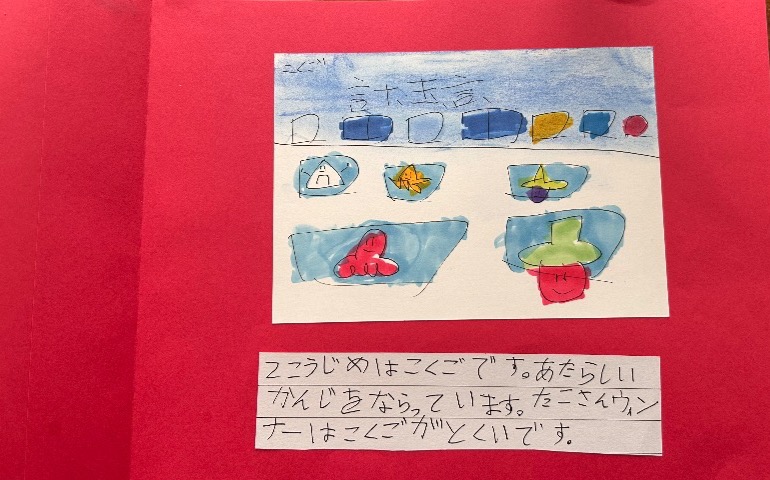 こくご
言木玉言
2こうじめはこくごです。あたらしい
かんじをならっています。たこさんウィン
ナーはこくごがとくいです。